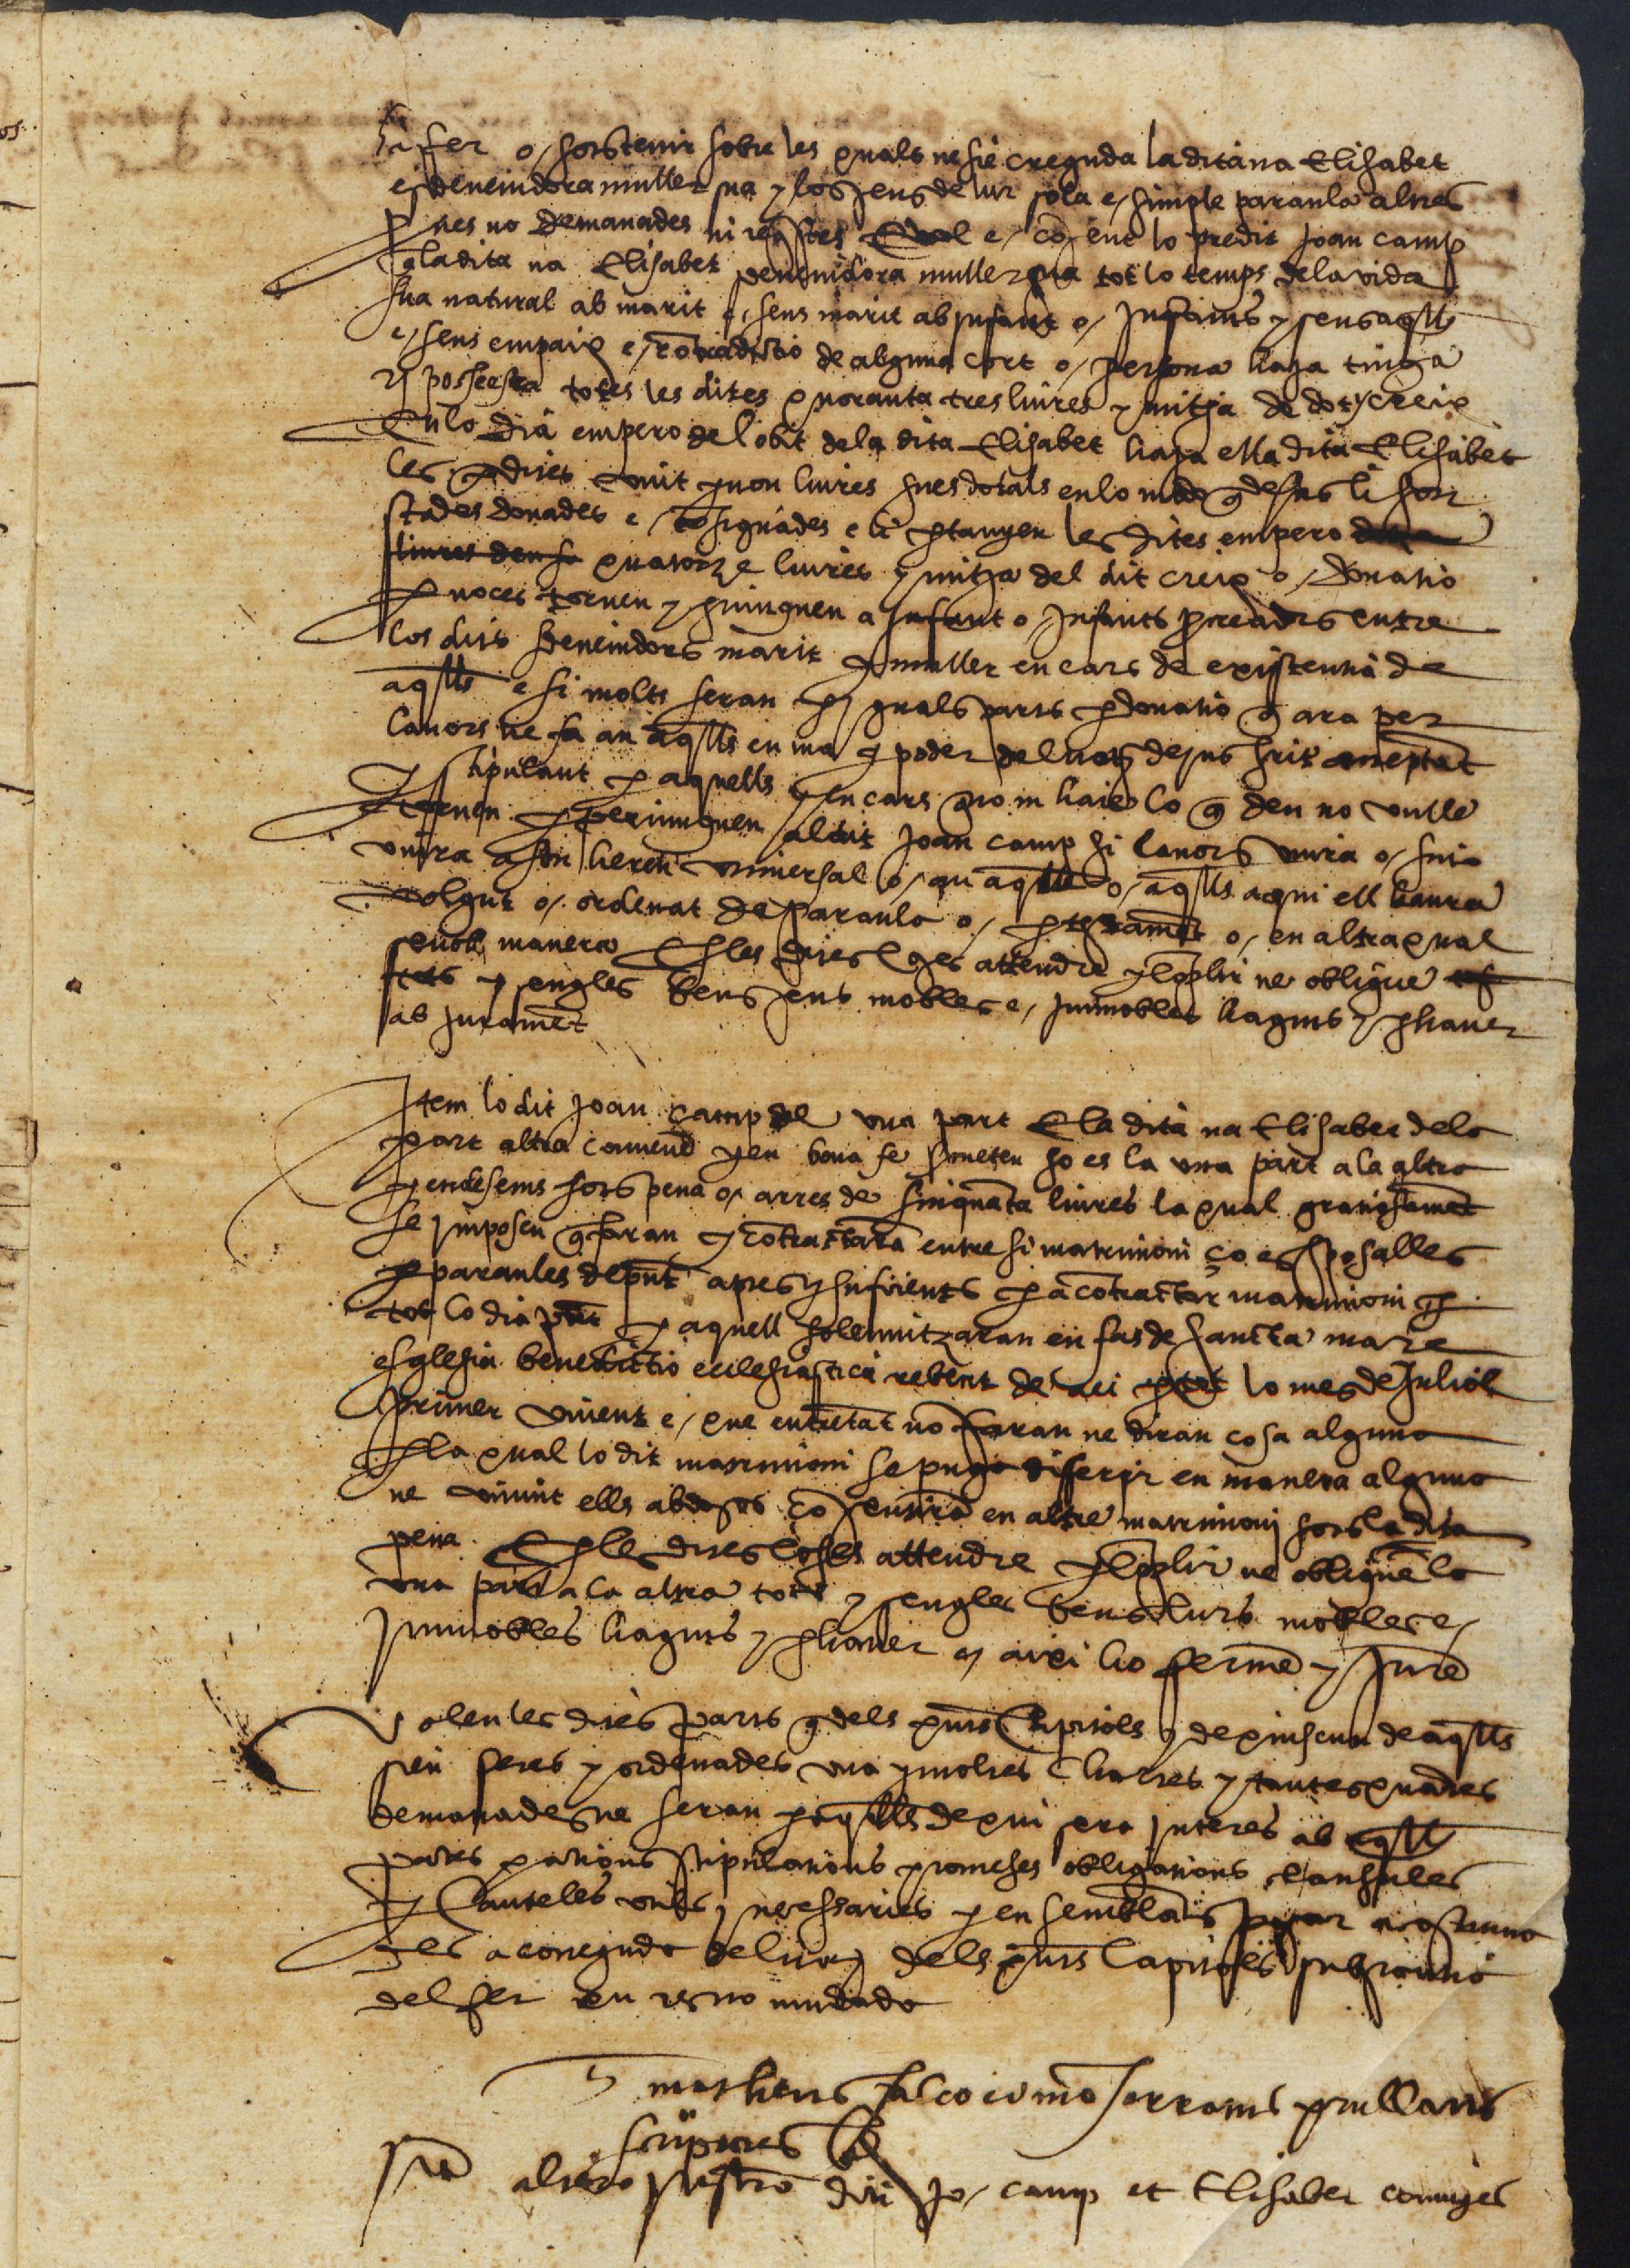 fer o, sostenir sobre les quals ne sie creguda la dita na Elisabet
esdevenidora muller sua y los seus de lur sola e, simple paraula altres
pnes no demanades ni reqstes e, cosent lo predit Joan Camp
q la dita na Elisabet venenidora muller sua tot lo temps de la vida
sua natural ab marit e, sens marit ab infant o, infants y sens aqlls
e, sens empaig e, contradictio de alguna cort o, persona haja tinga
y possehesca totes les dites quoranta tres liures y mitja de dot y creix
En lo dia empero del obit de la dita Elisabet haja ella dita Elisabet
les dites vint y nou liures sues dotals en lo modo q desus li son
stades donades e, cosignades e li ptanyen les dites empero
liures quatorze liures y mitja del dit creix o, donatio
p noces tornen y pvinguen a infant o, infants pcreadors entre
los dits sdevenidors marit y muller en cars de existentia de
aqlls e si molts seran p yguals parts p donatio q ara per
lanors ne fa an aqlls en ma y poder del not dejus scrit acceptat
y stipulant p aquells y en cars q no ni haie lo q deu no vulle
tornen y pervinguen al dit Joan Camp si lanors viura o, sino
viura a son hereu universal o, an aqll o, aqlls a qui ell haura
volgut o, ordenat de paraula o, p testamet o, en altra qual
sevol manera E p les dites coses attendre y coplir ne oblique
tots y sengles bens seus mobles e, immobles haguts y p haver
ab jurament
Item lo dit Joan Camp de una part E la dita na Elisabet de la
part altra convene y en bona fe pmeten so es la una part a la altra
y endesems sots pena o, arres de sinquata liures la qual graciosament
se imposen q faran y cotractara entre si matrimoni ço es sposalles
p paraules de pnt aptes y suficients p a contractar matrimoni p
tot lo dia pnt y aquell solemnitzaran en fas de sancta mare
esglesia benedictio ecclesiastica rebent de aci p tot lo mes de Juliol
primer vinent e, que entretat no faran ne diran cosa alguna
p la qual lo dit matrimoni se puga differir en manera alguna
ne vivint ells abdosos cosentira en altre matrimoni sots la dita
pena E p les dites coses attendre y coplir ne oblique la
una part a la altra tots y sengles bens lurs mobles e,
immobles haguts y p haver y aixi ho ferme y jure
Volen les dites parts q dels pnts Capitols y de quiscun de aqlls
sien fetes y ordenades una y moltes Chartes y tantes quantes
demanades ne seran p aqlls de qui sera interes ab
pactes pactions stipulations promeses obligations clausules
y Cauteles utils y necessaries y en semblats posar acostuma
des a coneguda del not dels pnts Capitols substantia
del fet en res no mudada
scriptores
altero dicti Jo, Camp et Elisabet conviges